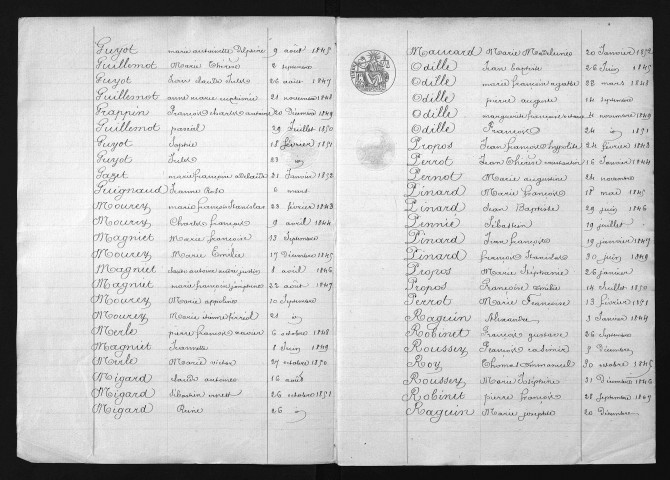 Guyot marie antoinette Delphine 9 août 1845
Guillemot Marie Thérèse 2 septembre
Guyot Jean claude Jules 26 août 1847
Guillemot anne marie euphémie 21 novembre 1848
Frappin François charles antoine 20 Décembre 1849
Guillemot parcial 29 Juillet 1850
Guyot Sophie 18 février 1851
Guyot Jules 23 id
Gazet marie françoise adelaide 21 Janvier 1852
Guignaud Jeanne 6 mars
Mourey marie françois Stanislas 23 février 1843
Mourey Charles françois 9 avril 1844
Magniet Marie françoise 13 Septembre
Mourey Marie Emilie 17 Décembre 1845
Magniet antoine 1 août 1846
Magniet marie françoise joséphine 22 août 1847
Mourey Marie appoline 10 Septembre
Mourey Marie 21 id
Merle pierre françois xavier 6 octobre 1848
Magniet Jeannette 8 Juin 1849
Merle Marie victor 27 octobre 1850
Migard claude antoine 16 août
Migard Sébastien 26 octobre 1851
Migard Reine 26 id
Maucard Marie Madeleine 20 Janvier 1852
Odille Jean baptiste 26 Juin 1845
Odille marie françoise agathe 22 mars 1848
Odille pierre auguste 14 septembre
Odille marguerite françoise 4 novembre 1849
Odille François 24 id 1851
Propos Jean françois hyppolite 24 février 1843
Perrot Jean 16 Janvier 1844
Pernot Marie augustine 24 novembre
Pinard Marie françois 18 mai 1845
Pinard Jean Baptiste 29 juin 1846
Pinnié Sébastien 19 juillet
Pinard Jean françois 19 janvier 1847
Pinard françois Stanislas 30 juin 1849
Propos Marie Stéphanie 26 janvier
Propos Françoise émilie 14 Juillet 1850
Perrot Marie Françoise 13 février 1851
Raguin Alexandre 3 Janvier 1844
Robinet François gustave 26 Septembre
Roussey François casimir 9 Décembre
Roy Thomas emmanuel 30 octobre 1845
Roussey Marie Joséphine 31 Décembre 1846
Robinet pierre françois 28 Septembre 1847
Raguin Marie josephe 20 Décembre